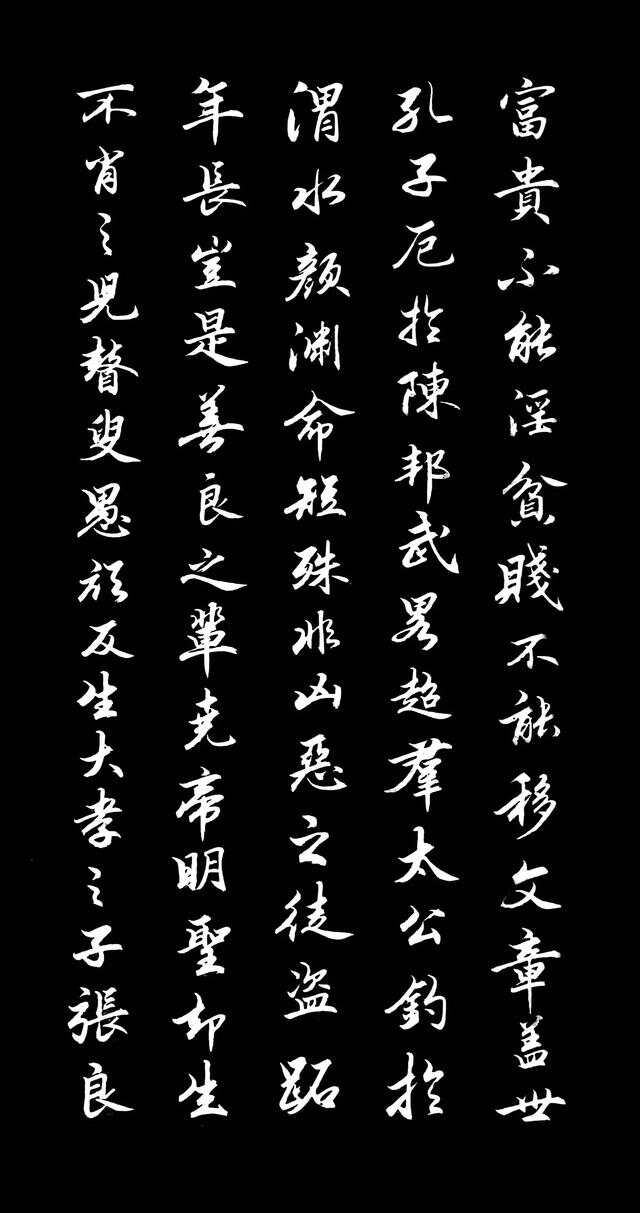 富貴不能淫貧賤不能移文章盖世
孔子厄於陳邦武畧超羣太公釣於
渭水顏渊命短殊非凶惡之徒盜跖
年長豈是善良之輩尭帝明聖却生
不肖之児瞽叟愚頑反生大孝之子張良